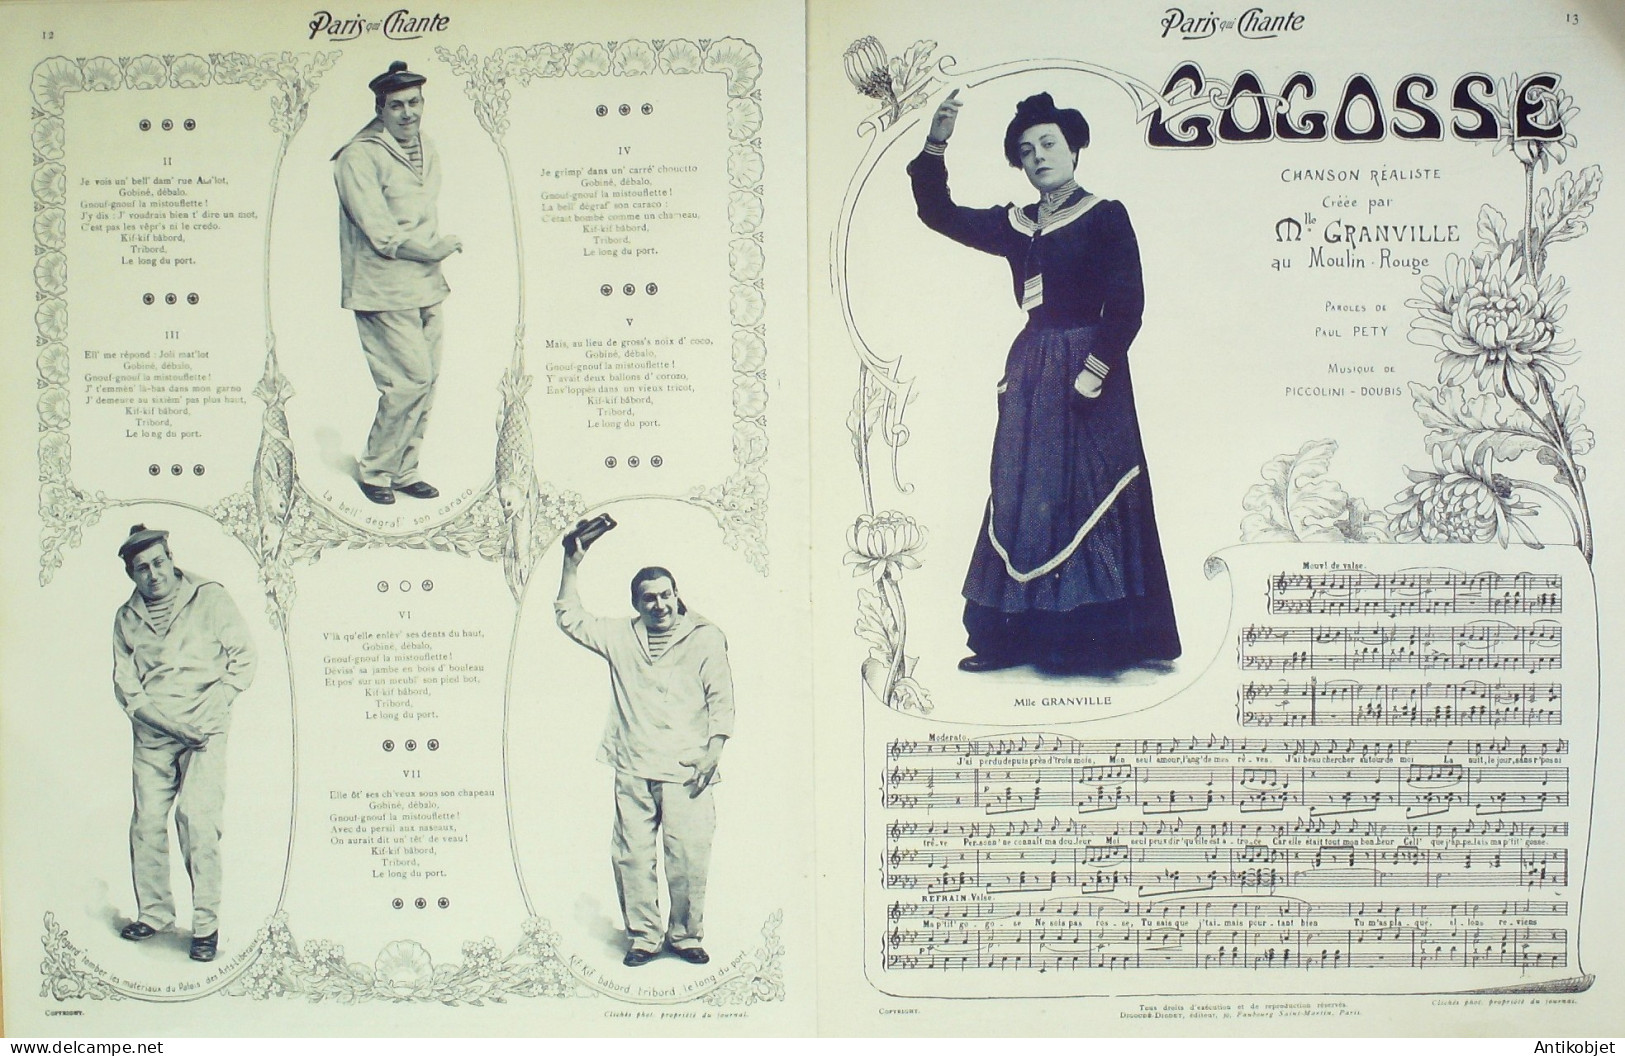 12
Paris qui Chante
II
Je vois un' bell' dam' rue
Gobiné, débalo,
Gnouf-gnouf la mistouflette !
J'y dis : J' voudrais bien t' dire un mot,
C'est pas les vêpr's ni le credo.
Kif-kif bâbord,
Tribord,
Le long du port.
III
Ell' me répond : Joli mat'lot
Gobiné, débalo,
Gnouf-gnouf la mistouflette !
J' t'emmèn' là-bas dans mon garno
J' demeure au sixièm' pas plus haut,
Kif-kif bâbord,
Tribord,
Le long du port.
IV
Je grimp' dans un' carré' chouetto
Gobiné, débalo,
Gnouf-gnouf la mistouflette !
La bell' dégraf' son caraco :
C'était bombé comme un chameau,
Kif-kif bâbord,
Tribord,
Le long du port.
V
Mais, au lieu de gross's noix d' coco,
Gobiné, débalo,
Gnouf-gnouf la mistouflette !
Y' avait deux ballons d' corozo,
Env'loppés dans un vieux tricot,
Kif-kif bâbord,
Tribord,
Le long du port.
La bell' dégraf' son caraco
VI
V'là qu'elle enlèv' ses dents du haut,
Gobiné, débalo,
Gnouf-gnouf la mistouflette !
Déviss' sa jambe en bois d' bouleau
Et pos' sur un meubl' son pied bot,
Kif-kif bâbord,
Tribord,
Le long du port.
VII
Elle ôt' ses ch'veux sous son chapeau
Gobiné, débalo,
Gnouf-gnouf la mistouflette !
Avec du persil aux naseaux,
On aurait dit un' têt' de veau !
Kif-kif bâbord,
Tribord,
Le long du port.
Regard' tomber les matériaux du Palais des Arts-Libéraux
Kif-Kif babord, tribord, le long du port
Copyright.
Clichés phot. propriété du journal.
Paris qui Chante
13
GOGOSSE
CHANSON RÉALISTE
Créée par
Mlle GRANVILLE
au Moulin-Rouge
PAROLES DE
PAUL PETY
MUSIQUE DE
PICCOLINI - DOUBIS
Mlle GRANVILLE
Mouvt de valse.
Moderato.
J'ai perdu depuis près d'trois mois, Mon seul amour, l'ang' de mes rê-ves. J'ai beau chercher autour de moi La nuit, le jour, sans r'pos ni
trê-ve Person' ne connaît ma douleur Moi seul peux dir' qu'elle est a-tro-ce Car elle était tout mon bonheur Cell' que j'ap-pe-lais ma p'tit' gosse.
REFRAIN. Valse.
Ma p'tit' go-go-se Ne sois pas ros-se, Tu sais que j't'ai-mais pour-tant bien Tu m'as pla-qué, al-lons re-viens
Copyright.
Tous droits d'exécution et de reproduction réservés.
Digoudé-Diodet, éditeur, 39, Faubourg Saint-Martin, Paris.
Clichés phot. propriété du journal.
Antikobjet